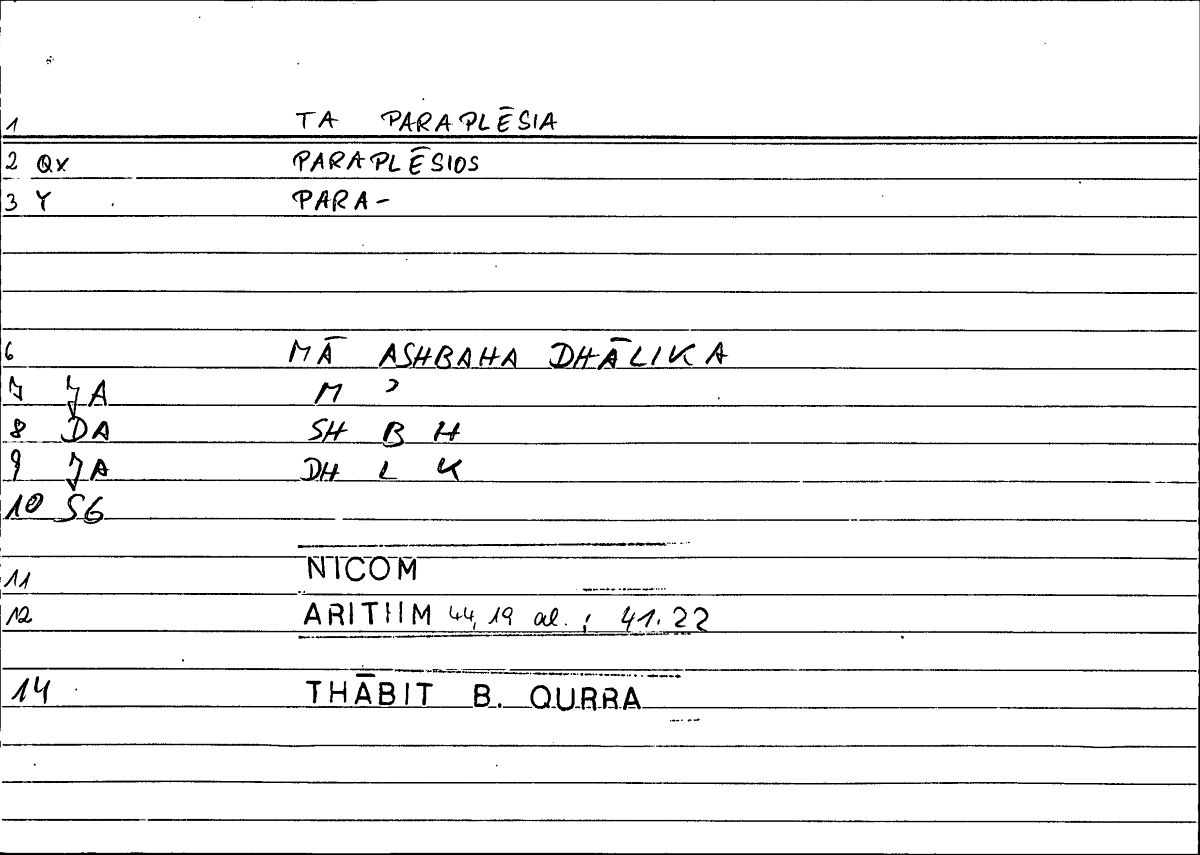 1 TA PARAPLĒSIA
2 Qx PARAPLĒSIOS
3 Y PARA-
6 MĀ ASHBAHA DHĀLIKA
7 JA M ʾ
8 DA SH B H
9 JA DH L K
10 SG
11 NICOM
12 ARITHM 44,19 al. ; 41.22
14 THĀBIT B. QURRA